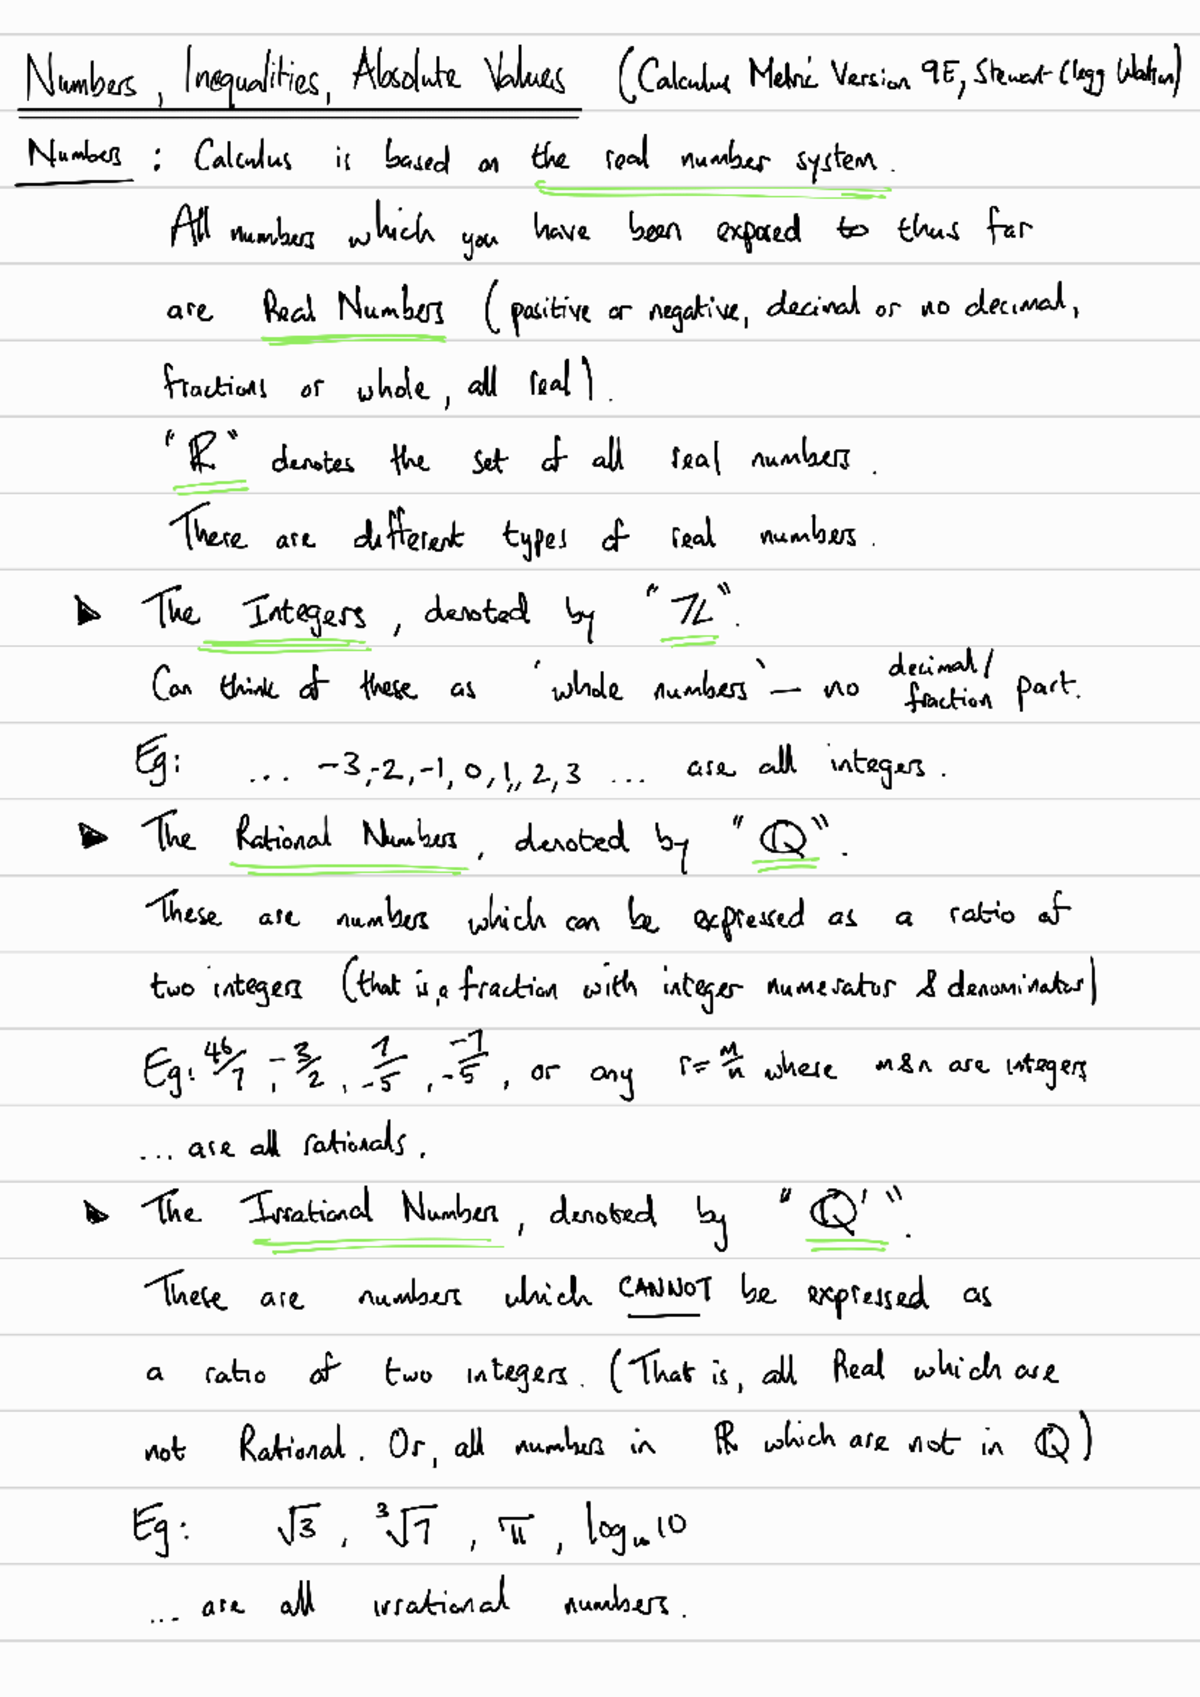 Numbers, Inequalities, Absolute Values (Calculus Metric Version 9E, Stewart Clegg Watson)
Numbers : Calculus is based on the real number system.
All numbers which you have been exposed to thus far
are Real Numbers (positive or negative, decimal or no decimal,
fractions or whole, all real).
"ℝ" denotes the set of all real numbers.
There are different types of real numbers.
▶ The Integers, denoted by "ℤ".
Can think of these as 'whole numbers' — no decimal/fraction part.
Eg: ... -3,-2,-1,0,1,,2,3 ... are all integers.
▶ The Rational Numbers, denoted by "ℚ".
These are numbers which can be expressed as a ratio of
two integers (that is, a fraction with integer numerator & denominator)
Eg: 46/7, -3/2, 7/-5, -7/-5, or any r = m/n where m & n are integers
... are all rationals.
▶ The Irrational Numbers, denoted by "ℚ'".
These are numbers which CANNOT be expressed as
a ratio of two integers. (That is, all Real which are
not Rational. Or, all numbers in ℝ which are not in ℚ)
Eg: √3, ³√7, π, log 10
... are all irrational numbers.